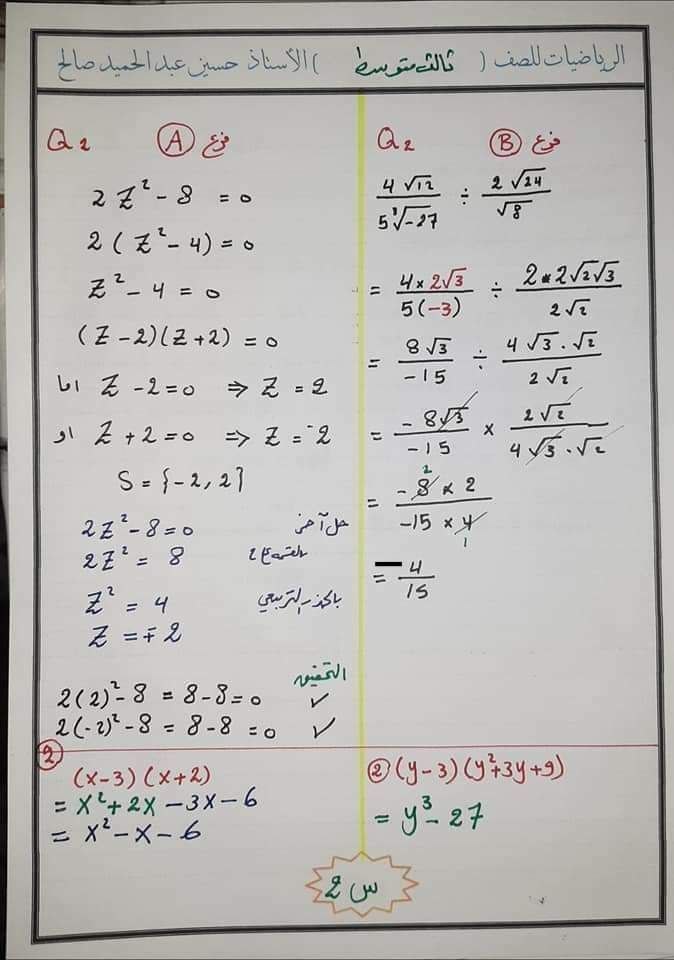 الرياضيات للصف ( ثالث متوسط ) الأستاذ حسين عبد الحميد صالح
Q2 فرع (A)
2Z² - 8 = 0
2(Z² - 4) = 0
Z² - 4 = 0
(Z - 2)(Z + 2) = 0
اما Z - 2 = 0 ⇒ Z = 2
او Z + 2 = 0 ⇒ Z = -2
S = {-2, 2}
2Z² - 8 = 0 حل آخر
2Z² = 8
Z² = 4 بالجذر التربيعي
Z = ∓2
التحقيق
2(2)² - 8 = 8 - 8 = 0 ✓
2(-2)² - 8 = 8 - 8 = 0 ✓
Q2 فرع (B)
4√12 / 5∛-27 ÷ 2√24 / √8
= 4×2√3 / 5(-3) ÷ 2*2√2√3 / 2√2
= 8√3 / -15 ÷ 4√3 . √2 / 2√2
= -8√3 / -15 × 2√2 / 4√3 . √2
= -8 × 2 / -15 × 4
2
1
= -4 / 15
②
(x-3)(x+2)
= x² + 2x - 3x - 6
= x² - x - 6
② (y-3)(y²+3y+9)
= y³ - 27
س 2